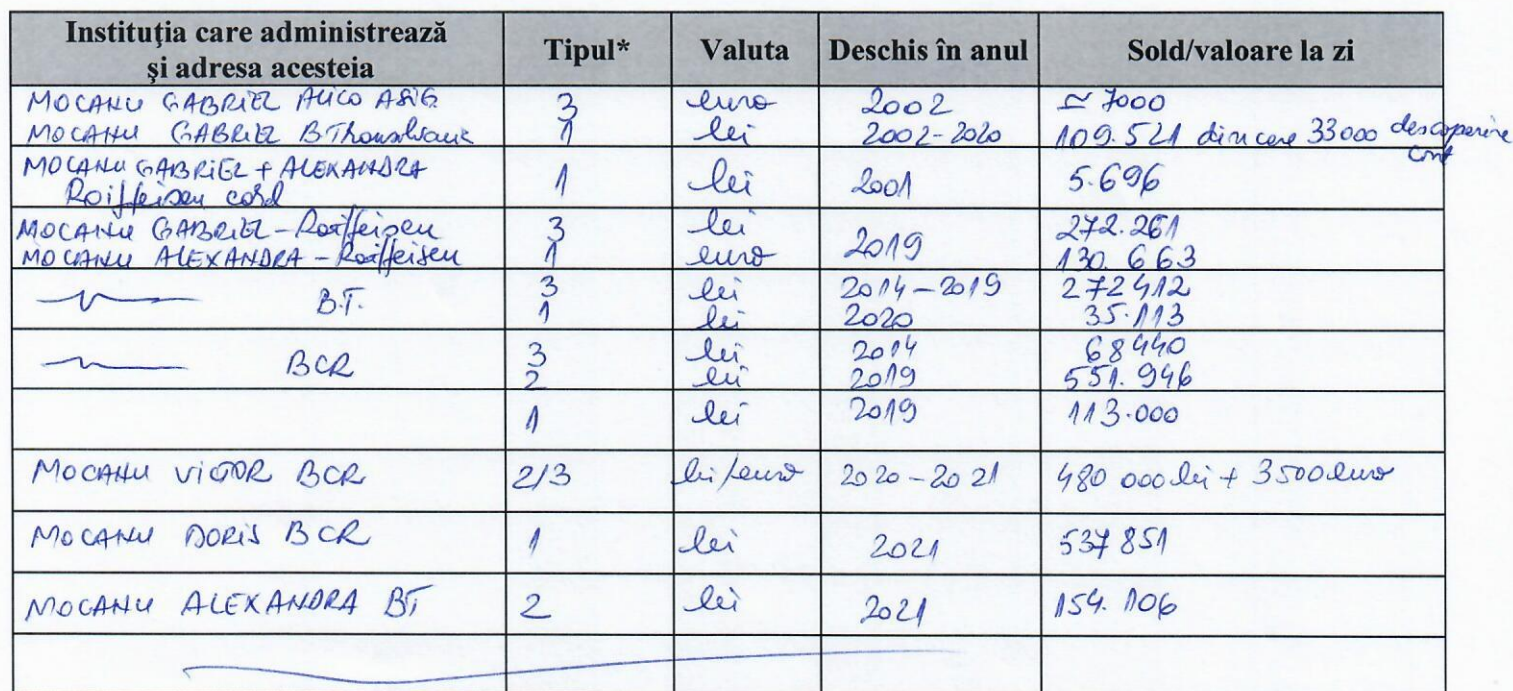 Instituţia care administrează şi adresa acesteia Tipul* Valuta Deschis în anul Sold/valoare la zi
MOCANU GABRIEL ALICO ASIG 3 euro 2002 ≃ 7000
MOCANU GABRIEL BTransilvanic 1 lei 2002-2020 109.521 din care 33000 descoperire cont
MOCANU GABRIEL + ALEXANDRA
Raiffeisen card 1 lei 2001 5.696
MOCANU GABRIEL - Raiffeisen 3 lei 2019 272.261
MOCANU ALEXANDRA - Raiffeisen 1 euro 130.663
B.T. 3 lei 2014-2019 272412
1 lei 2020 35.113
BCR 3 lei 2014 68440
2 lei 2019 551.946
1 lei 2019 113.000
MOCANU VICTOR BCR 2/3 lei/euro 2020-2021 480 000 lei + 3500 euro
MOCANU DORIS BCR 1 lei 2021 537851
MOCANU ALEXANDRA BT 2 lei 2021 154.106